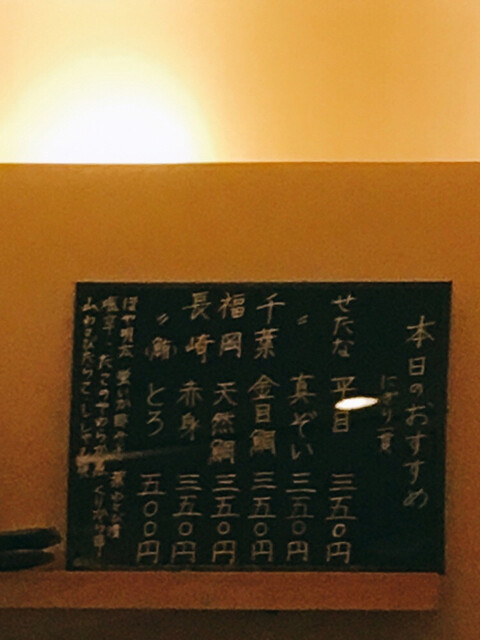 本日のおすすめ
にぎり一貫
せたな 平目 三五〇円
〃 真ぞい 三五〇円
千葉 金目鯛 三五〇円
福岡 天然鯛 三五〇円
長崎 赤身 三五〇円
〃(鮪) とろ 五〇〇円
ほや明太
塩辛 たこのやわらか
山わさびたらこ ししゃも